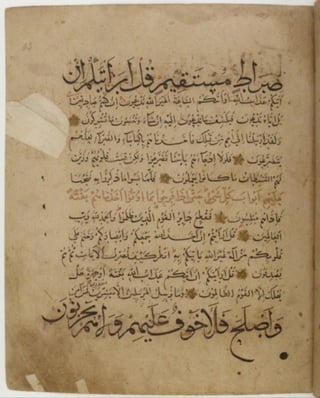 صراط مستقيم قل ارايتكم ان
اتيكم عذاب الله او اتتكم الساعة اغير الله تدعون ان كنتم صادقين
بل اياه تدعون فيكشف ما تدعون اليه ان شاء وتنسون ما تشركون
ولقد ارسلنا الى امم من قبلك فاخذناهم بالباساء والضراء لعلهم
يتضرعون فلولا اذ جاءهم باسنا تضرعوا ولكن قست قلوبهم وزين
لهم الشيطان ما كانوا يعملون فلما نسوا ما ذكروا به فتحنا
عليهم ابواب كل شيء حتى اذا فرحوا بما اوتوا اخذناهم بغتة
فاذا هم مبلسون فقطع دابر القوم الذين ظلموا والحمد لله رب
العالمين قل ارايتم ان اخذ الله سمعكم وابصاركم وختم على
قلوبكم من اله غير الله ياتيكم به انظر كيف نصرف الايات ثم هم
يصدفون قل ارايتكم ان اتيكم عذاب الله بغتة او جهرة هل
يهلك الا القوم الظالمون وما نرسل المرسلين الا مبشرين ومنذرين فمن امن
واصلح فلا خوف عليهم ولا هم يحزنون